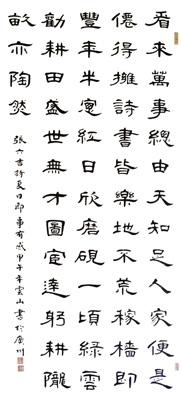 看來萬事總由天知足人家便是
僊得擁詩書皆樂地不荒稼穡即
豐年半窓紅日欣磨硯一頃綠雲
勸耕田盛世無才圖宦達躬耕隴
畝亦陶然
張六吉詩夏日即事有感甲子年雲山書於廣州